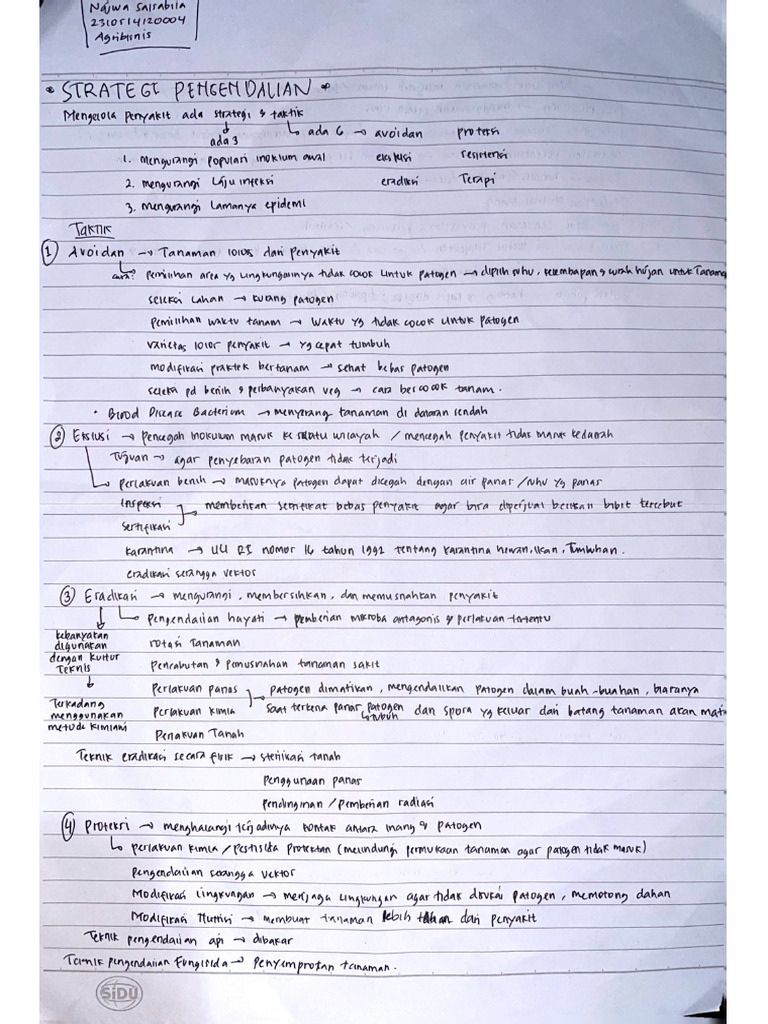 Najwa Salsabila
2310514120004
Agribisnis
* STRATEGI PENGENDALIAN *
Mengelola penyakit ada strategi & taktik
ada 3
ada 6 → avoidan proteksi
1. mengurangi populasi inokulum awal eksklusi resistensi
2. mengurangi Laju infeksi eradikasi Terapi
3. mengurangi Lamanya epidemi
Taktik
① Avoidan → Tanaman lolos dari penyakit
cara? pemilihan area yg lingkungannya tidak cocok untuk patogen → dipilih suhu, kelembapan & curah hujan untuk Tanaman
seleksi lahan → kurang patogen
pemilihan waktu tanam → waktu yg tidak cocok untuk patogen
varietas lolos penyakit → yg cepat tumbuh
modifikasi praktek bertanam → sehat bebas patogen
seleksi pd benih & perbanyakan veg → cara bercocok tanam.
• Blood Disease Bacterium → menyerang tanaman di dataran rendah
② Ekslusi → pencegah inokulum masuk ke suatu wilayah / mencegah penyakit tidak masuk kedaerah
Tujuan → agar penyebaran patogen tidak terjadi
perlakuan benih → masuknya patogen dapat dicegah dengan air panas / suhu yg panas
Inspeksi
sertifikasi → memberikan sertifikat bebas penyakit agar bisa diperjual belikan bibit tersebut
karantina → UU RI nomor 16 tahun 1992 tentang karantina hewan, ikan, Tumbuhan.
eradikasi serangga vektor
③ Eradikasi → mengurangi, membersihkan, dan memusnahkan penyakit
pengendalian hayati → pemberian mikroba antagonis & perlakuan tertentu
kebanyakan digunakan dengan kultur Teknis
rotasi Tanaman
Pencabutan & pemusnahan tanaman sakit
Terkadang menggunakan metode kimiawi
Perlakuan panas → patogen dimatikan, mengendalikan patogen dalam buah-buahan, biasanya
Perlakuan kimia saat terkena panas, patogen tubuh dan spora yg keluar dari batang tanaman akan mati
Perlakuan Tanah
Teknik eradikasi secara fisik → sterilisasi tanah
Penggunaan panas
Pendinginan / Pemberian radiasi
④ Proteksi → menghalangi terjadinya kontak antara inang & patogen
perlakuan kimia / pestisida protektan (melindungi permukaan tanaman agar patogen tidak masuk)
Pengendalian serangga vektor
Modifikasi lingkungan → menjaga lingkungan agar tidak disukai patogen, memotong dahan
Modifikasi Nutrisi → membuat tanaman lebih tahan dari penyakit
Teknik pengendalian api → dibakar
Teknik pengendalian Fungisida → Penyemprotan tanaman.
SiDU